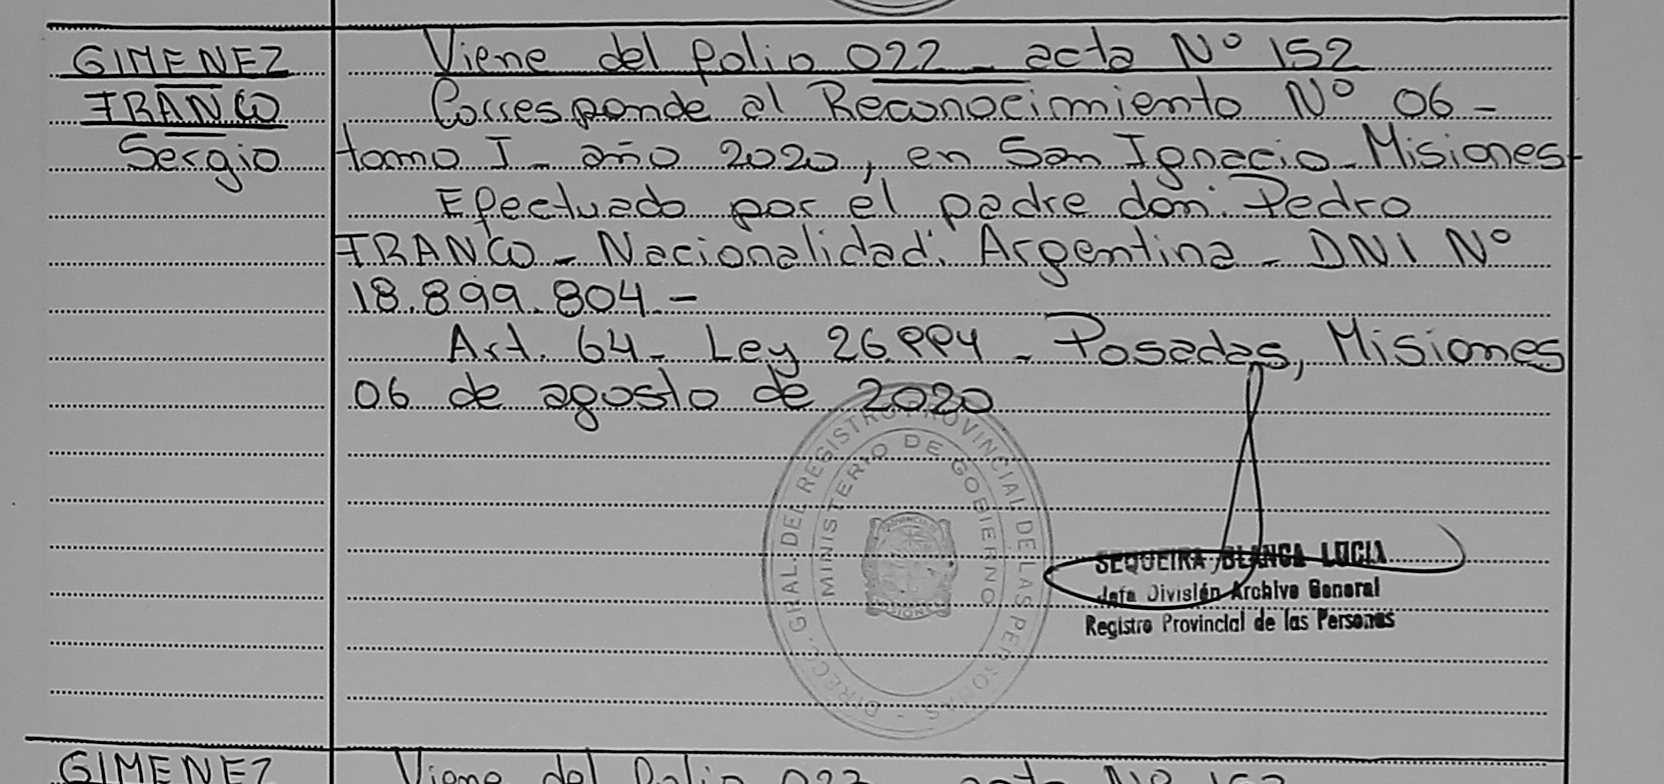 GIMENEZ
FRANCO
Sergio
Viene del folio 022 - acta Nº 152
Corresponde al Reconocimiento Nº 06 -
tomo I - año 2020, en San Ignacio - Misiones -
Efectuado por el padre don: Pedro
FRANCO - Nacionalidad: Argentina - DNI Nº
18.899.804.-
Art. 64 - Ley 26994 - Posadas, Misiones
06 de agosto de 2020
DIRECC. GRAL. DEL REGISTRO PROVINCIAL DE LAS PERSONAS -
MINISTERIO DE GOBIERNO
SEQUEIRA BLANCA LUCIA
Jefa División Archivo General
Registro Provincial de las Personas
GIMENEZ
Viene del folio